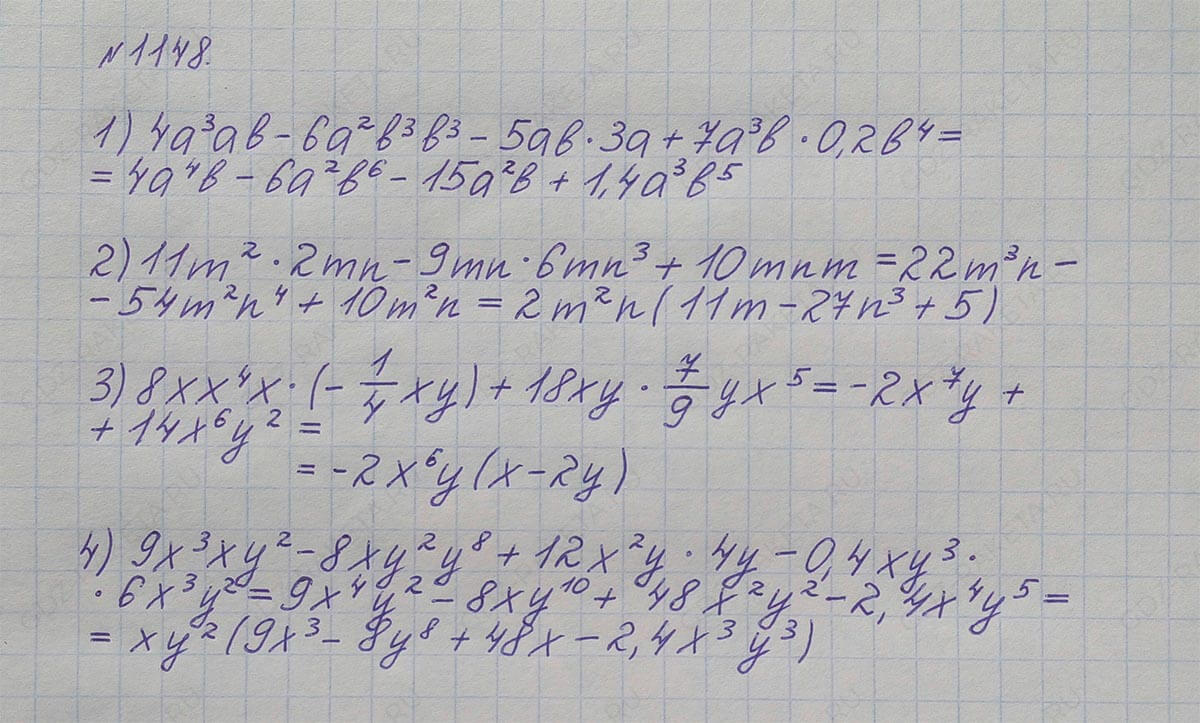 №1148.
1) 4a³ab - 6a²b³b³ - 5ab · 3a + 7a³b · 0,2b⁴ =
= 4a⁴b - 6a²b⁶ - 15a²b + 1,4a³b⁵
2) 11m² · 2mn - 9mn · 6mn³ + 10mnm = 22m³n -
- 54m²n⁴ + 10m²n = 2m²n (11m - 27n³ + 5)
3) 8xx⁴x · (- 1/4 xy) + 18xy · 7/9 yx⁵ = -2x⁷y +
+ 14x⁶y² =
= -2x⁶y (x - 2y)
4) 9x³xy² - 8xy²y⁸ + 12x²y · 4y - 0,4xy³ ·
· 6x³y² = 9x⁴y² - 8xy¹⁰ + 48x²y² - 2,4x⁴y⁵ =
= xy² (9x³ - 8y⁸ + 48x - 2,4x³y³)